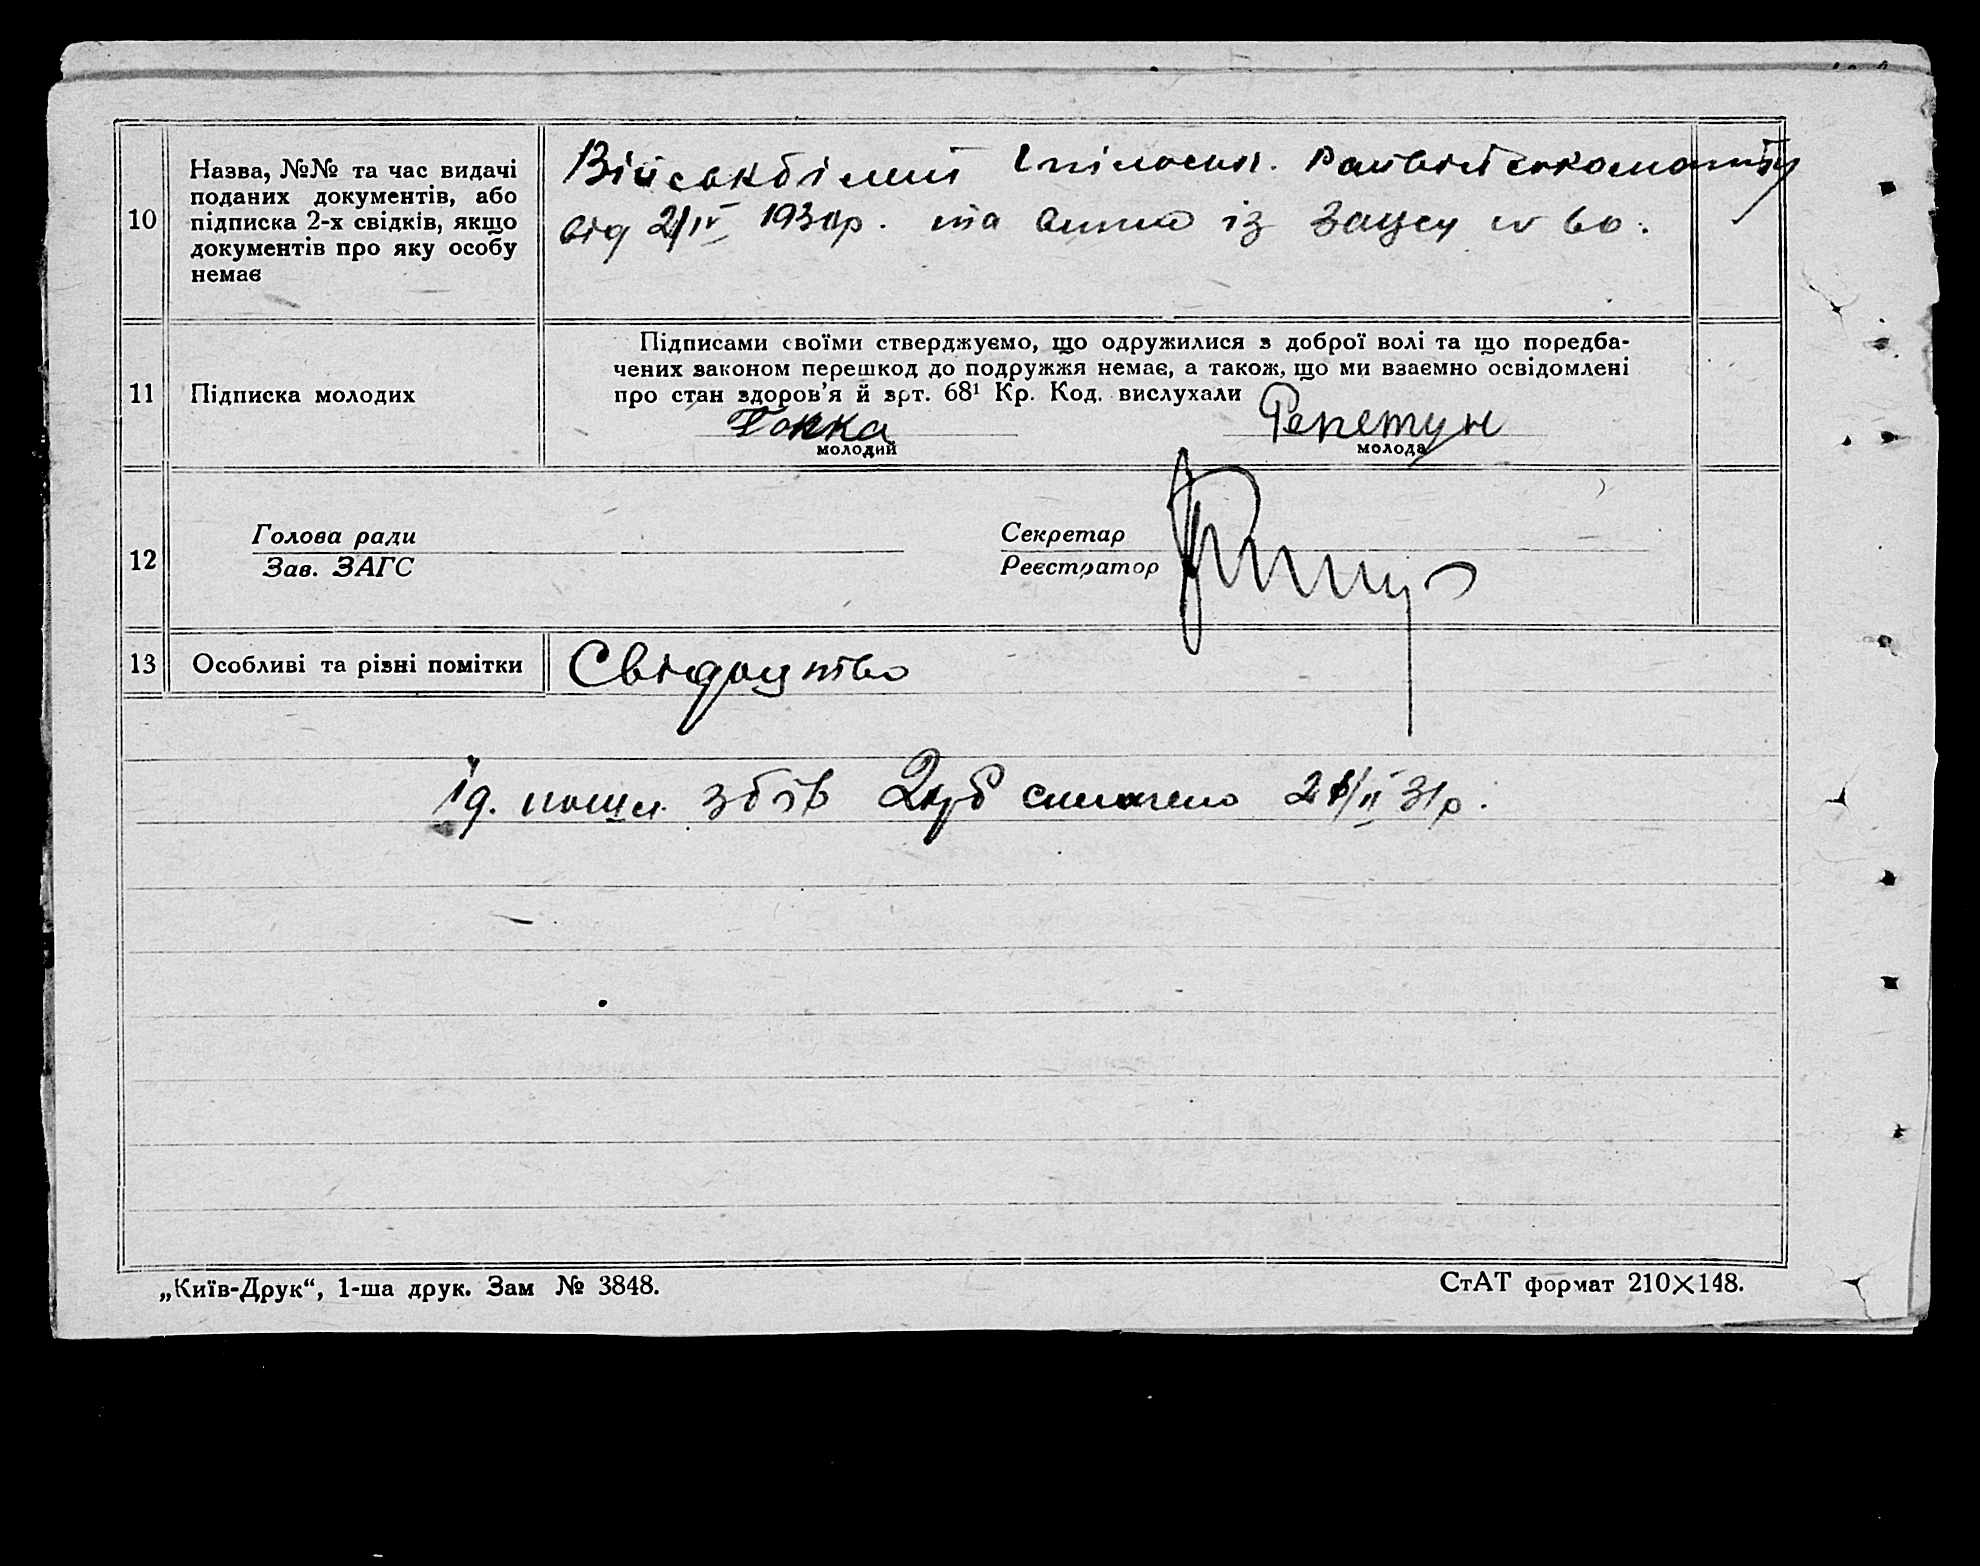 10
Назва, №№ та час видачі
поданих документів, або
підписка 2-х свідків, якщо
документів про яку особу
немає
Військбілет
від 2/IV 1930р. та із Загсу № 60.
11
Підписка молодих
Підписами своїми стверджуємо, що одружилися з доброї волі та що передба-
чених законом перешкод до подружжя немає, а також, що ми взаємно освідомлені
про стан здоров'я й арт. 68¹ Кр. Код. вислухали
молодий
Репетун
молода
12
Голова ради
Зав. ЗАГС
Секретар
Реєстратор
13
Особливі та різні помітки
Свідоцтво
збів 2крб сплачено /II 31р.
„Київ-Друк“, 1-ша друк. Зам № 3848.
СтАТ формат 210×148.